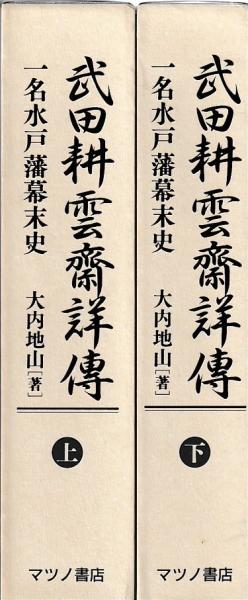 武田耕雲齋詳傳
一名水戸藩幕末史
大内地山[著]
上
マツノ書店
武田耕雲齋詳傳
一名水戸藩幕末史
大内地山[著]
下
マツノ書店